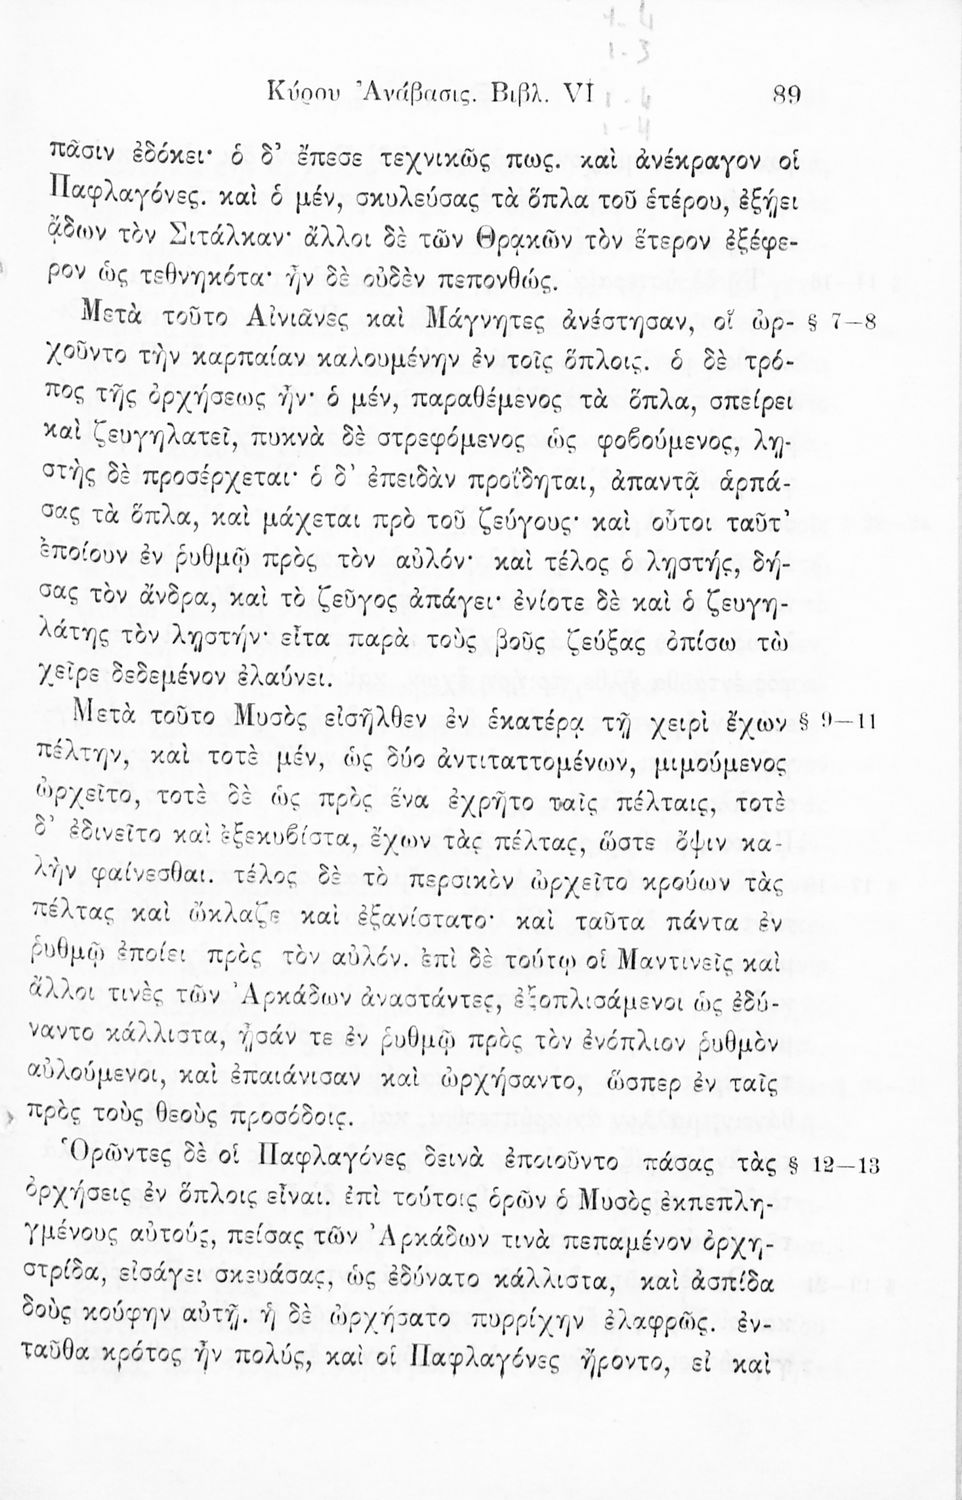 Κύρου Ἀνάβασις. Βιβλ. VI 89
πᾶσιν ἐδόκει· ὁ δ' ἔπεσε τεχνικῶς πως. καὶ ἀνέκραγον οἱ
Παφλαγόνες. καὶ ὁ μέν, σκυλεύσας τὰ ὅπλα τοῦ ἑτέρου, ἐξῄει
ᾄδων τὸν Σιτάλκαν· ἄλλοι δὲ τῶν Θρᾳκῶν τὸν ἕτερον ἐξέφε-
ρον ὡς τεθνηκότα· ἦν δὲ οὐδὲν πεπονθώς.
Μετὰ τοῦτο Αἰνιᾶνες καὶ Μάγνητες ἀνέστησαν, οἵ ὠρ- § 7—8
χοῦντο τὴν καρπαίαν καλουμένην ἐν τοῖς ὅπλοις. ὁ δὲ τρό-
πος τῆς ὀρχήσεως ἦν· ὁ μέν, παραθέμενος τὰ ὅπλα, σπείρει
καὶ ζευγηλατεῖ, πυκνὰ δὲ στρεφόμενος ὡς φοβούμενος, λῃ-
στὴς δὲ προσέρχεται· ὁ δ' ἐπειδὰν προΐδηται, ἀπαντᾷ ἁρπά-
σας τὰ ὅπλα, καὶ μάχεται πρὸ τοῦ ζεύγους· καὶ οὗτοι ταῦτ'
ἐποίουν ἐν ῥυθμῷ πρὸς τὸν αὐλόν· καὶ τέλος ὁ λῃστής, δή-
σας τὸν ἄνδρα, καὶ τὸ ζεῦγος ἀπάγει· ἐνίοτε δὲ καὶ ὁ ζευγη-
λάτης τὸν λῃστήν· εἶτα παρὰ τοὺς βοῦς ζεύξας ὀπίσω τὼ
χεῖρε δεδεμένον ἐλαύνει.
Μετὰ τοῦτο Μυσὸς εἰσῆλθεν ἐν ἑκατέρᾳ τῇ χειρὶ ἔχων § 9—11
πέλτην, καὶ τοτὲ μέν, ὡς δύο ἀντιταττομένων, μιμούμενος
ὠρχεῖτο, τοτὲ δὲ ὡς πρὸς ἕνα ἐχρῆτο ταῖς πέλταις, τοτὲ
δ' ἐδινεῖτο καὶ ἐξεκυβίστα, ἔχων τὰς πέλτας, ὥστε ὄψιν κα-
λὴν φαίνεσθαι. τέλος δὲ τὸ περσικὸν ὠρχεῖτο κρούων τὰς
πέλτας καὶ ὤκλαζε καὶ ἐξανίστατο· καὶ ταῦτα πάντα ἐν
ῥυθμῷ ἐποίει πρὸς τὸν αὐλόν. ἐπὶ δὲ τούτῳ οἱ Μαντινεῖς καὶ
ἄλλοι τινὲς τῶν Ἀρκάδων ἀναστάντες, ἐξοπλισάμενοι ὡς ἐδύ-
ναντο κάλλιστα, ᾖσάν τε ἐν ῥυθμῷ πρὸς τὸν ἐνόπλιον ῥυθμὸν
αὐλούμενοι, καὶ ἐπαιάνισαν καὶ ὠρχήσαντο, ὥσπερ ἐν ταῖς
πρὸς τοὺς θεοὺς προσόδοις.
Ὁρῶντες δὲ οἱ Παφλαγόνες δεινὰ ἐποιοῦντο πάσας τὰς § 12—13
ὀρχήσεις ἐν ὅπλοις εἶναι. ἐπὶ τούτοις ὁρῶν ὁ Μυσὸς ἐκπεπλη-
γμένους αὐτούς, πείσας τῶν Ἀρκάδων τινὰ πεπαμένον ὀρχη-
στρίδα, εἰσάγει σκευάσας, ὡς ἐδύνατο κάλλιστα, καὶ ἀσπίδα
δοὺς κούφην αὐτῇ. ἡ δὲ ὠρχήσατο πυρρίχην ἐλαφρῶς. ἐν-
ταῦθα κρότος ἦν πολύς, καὶ οἱ Παφλαγόνες ἤροντο, εἰ καὶ